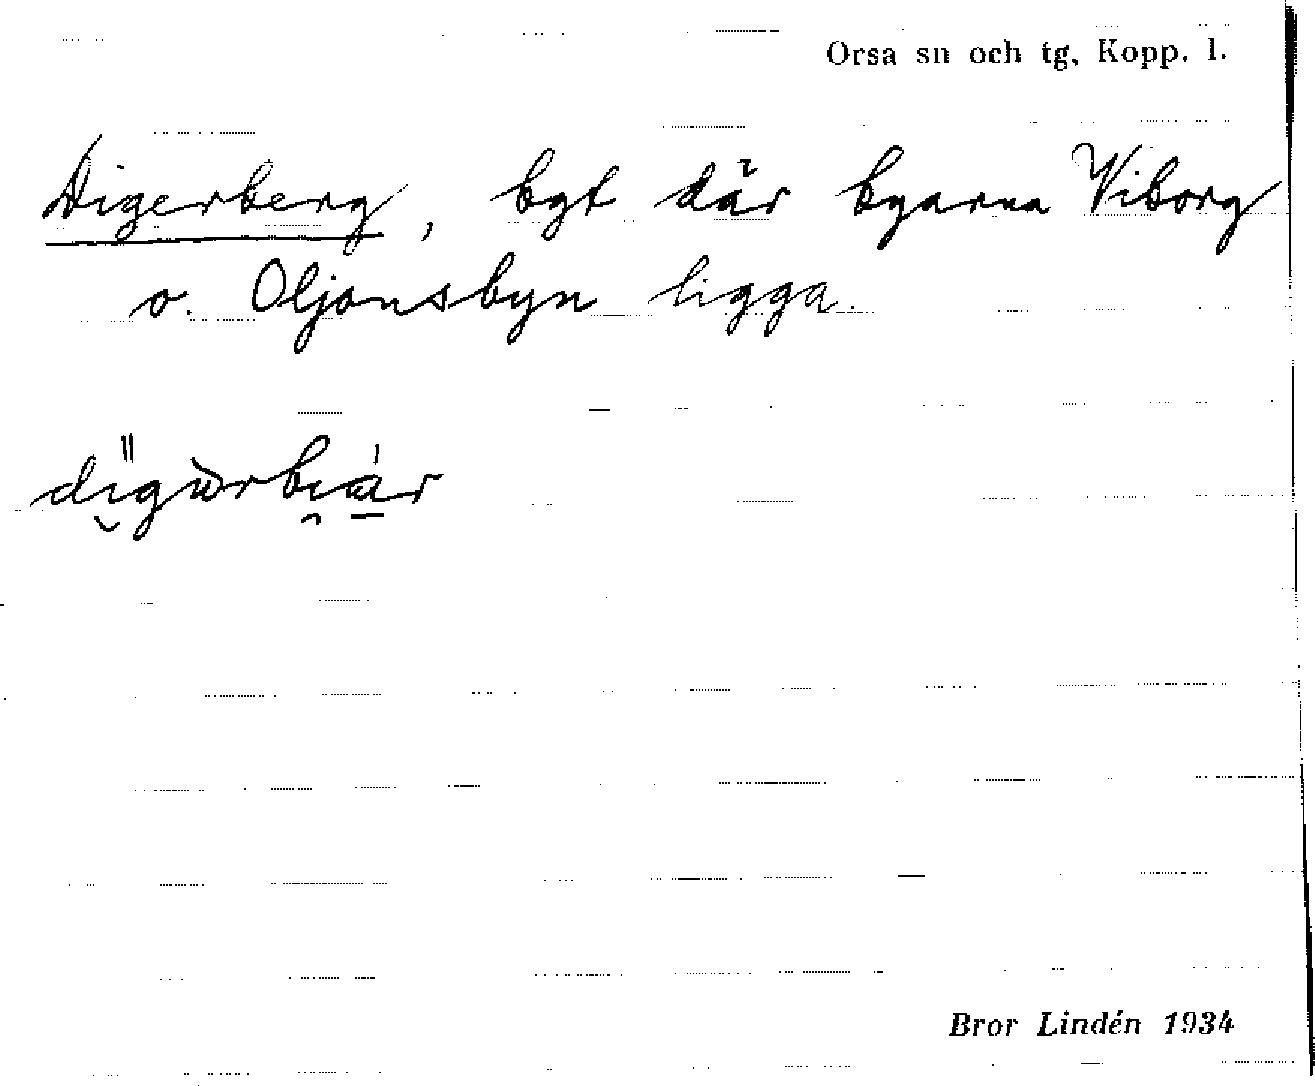 Orsa sn och tg, Kopp. l.
Digerberg, bgt där byarna Viborg
o. Oljonsbyn ligga.
Bror Lindén 1934